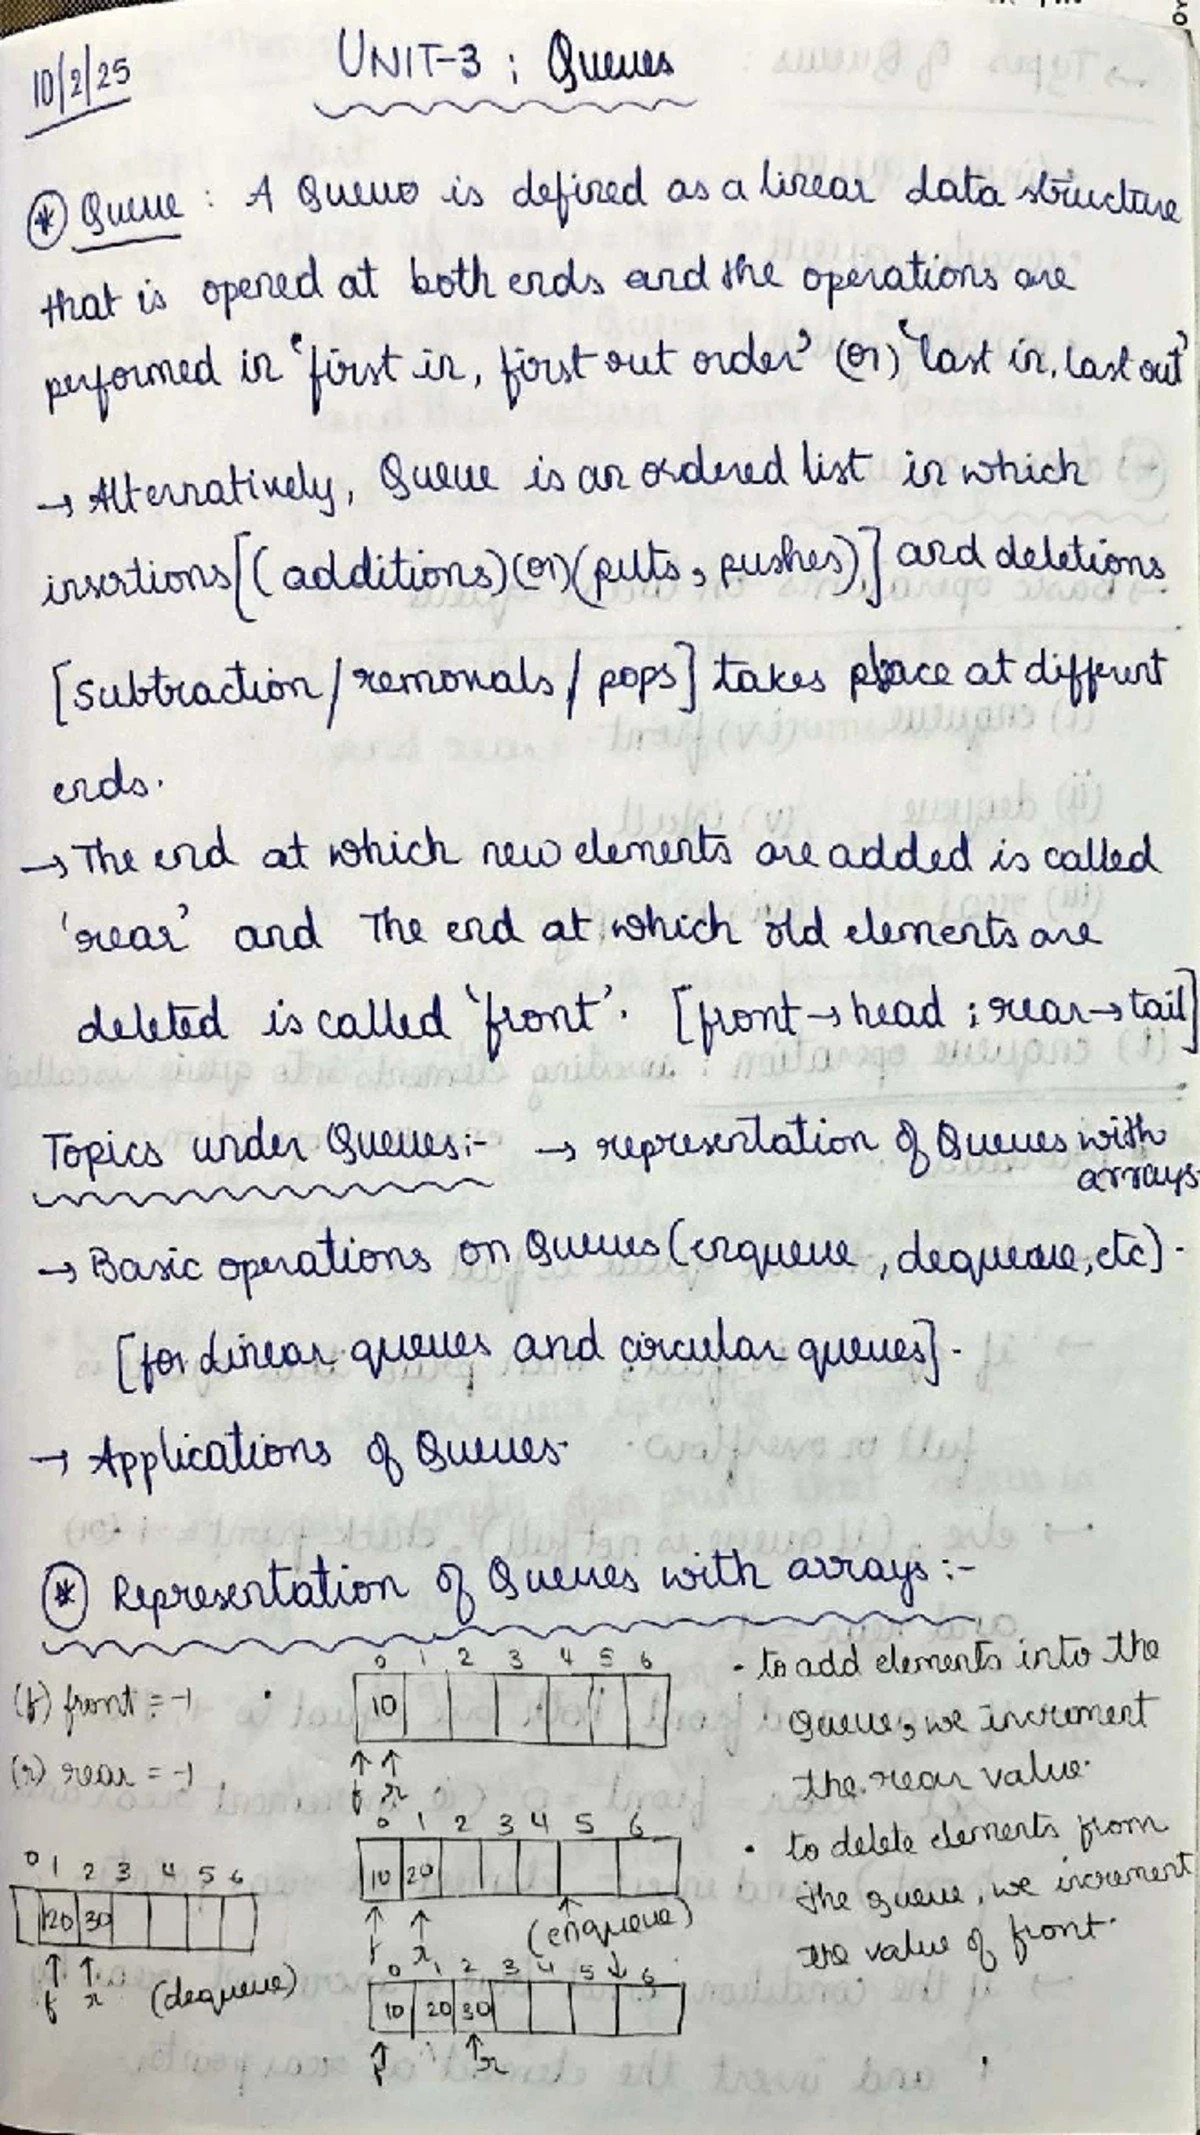 10/2/25
UNIT-3 : Queues
* Queue : A Queue is defined as a linear data structure
that is opened at both ends and the operations are
performed in 'first in, first out order' (or) 'last in, last out'
→ Alternatively, Queue is an ordered list in which
insertions [(additions) (or) (puts, pushes)] and deletions
[Subtraction / removals / pops] takes place at different
ends.
→ The end at which new elements are added is called
'rear' and The end at which old elements are
deleted is called 'front'. [front → head ; rear → tail]
Topics under Queues:- → representation of Queues with
arrays.
→ Basic operations on Queues (enqueue, dequeue, etc).
[for Linear queues and circular queues].
→ Applications of Queues.
* Representation of Queues with arrays :-
(f) front = -1
(r) rear = -1
0 1 2 3 4 5 6
10
↑ ↑
f r
0 1 2 3 4 5 6
10 20
↑ ↑
f r
(enqueue)
0 1 2 3 4 5 6
10 20 30
↑ ↑
f r
0 1 2 3 4 5 6
20 30
↑ ↑
f r (dequeue)
• to add elements into the
Queue, we increment
the rear value.
• to delete elements from
the queue, we increment
the value of front.